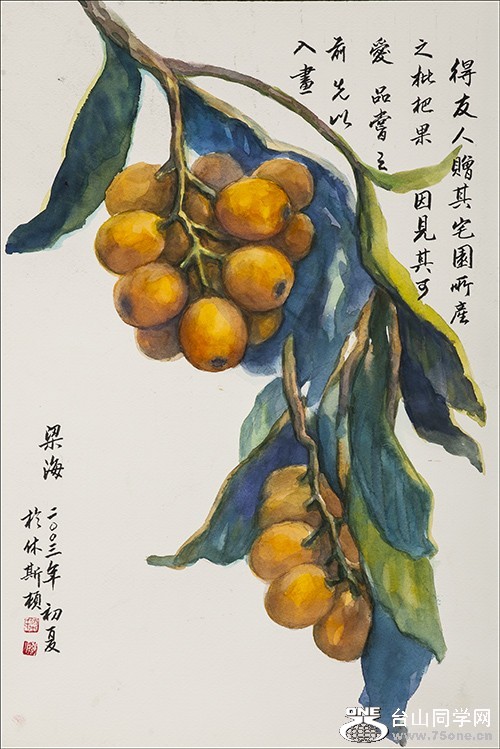 得友人贈其宅園所產
之枇杷果 因見其可
愛 品嘗之
前先以
入畫
梁海
二〇〇三年初夏
於休斯頓
ONE
75
台山同学网
www.75one.cn